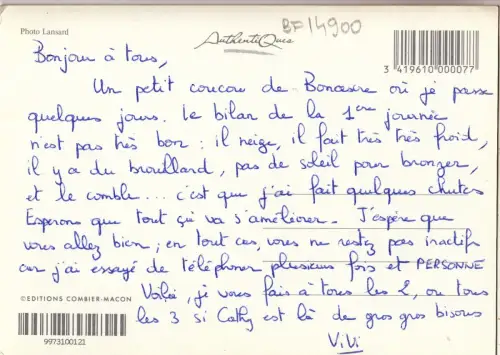 Photo Lansard
AuthentiQues
BF14900
3 419610 000077
Bonjour à tous,
Un petit coucou de Bonascre où je passe
quelques jours. Le bilan de la 1ère journée
n'est pas très bon : il neige, il fait très très froid,
il y a du brouillard, pas de soleil pour bronzer,
et le comble... c'est que j'ai fait quelques chutes
Esperons que tout ça va s'améliorer. J'espère que
vous allez bien ; en tout cas, vous ne restez pas inactifs
car j'ai essayé de téléphoner plusieurs fois et PERSONNE
Voilà, je vous fais à tous les 2, ou tous
les 3 si Cathy est là de gros gros bisous
ViVi
©EDITIONS COMBIER-MACON
9973100121